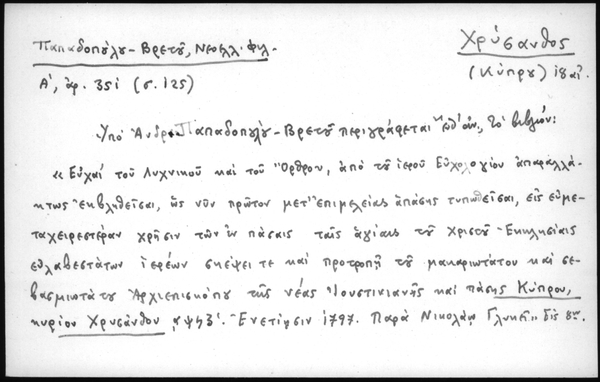 Παπαδοπούλου-Βρετοῦ, Νεοελλ. Φιλ.
Χρύσανθος
Α', ἀρ. 351 (σ. 125)
(Κύπρου) 18 αἰ.
Ὑπὸ Ἀνδρ. Παπαδοπούλου-Βρετοῦ περιγράφεται τὸ βιβλίον:
« Εὐχαὶ τοῦ Λυχνικοῦ καὶ τοῦ Ὄρθρου, ἀπὸ τοῦ ἱεροῦ Εὐχολογίου ἀπαραλλά-
κτως ἐκβληθεῖσαι, ὡς νῦν πρῶτον μετ' ἐπιμελείας ἁπάσης τυπωθεῖσαι, εἰς εὐμε-
ταχειρεστέραν χρῆσιν τῶν ἐν πάσαις ταῖς ἁγίαις τοῦ Χριστοῦ Ἐκκλησίαις
εὐλαβεστάτων ἱερέων σκέψει τε καὶ προτροπῇ τοῦ μακαριωτάτου καὶ σε-
βασμιωτάτου Ἀρχιεπισκόπου τῆς νέας Ἰουστινιανῆς καὶ πάσης Κύπρου,
κυρίου Χρυσάνθου Ἐνετίῃσιν 1797. Παρὰ Νικολάῳ Γλυκεῖ» Εἰς 8ον.